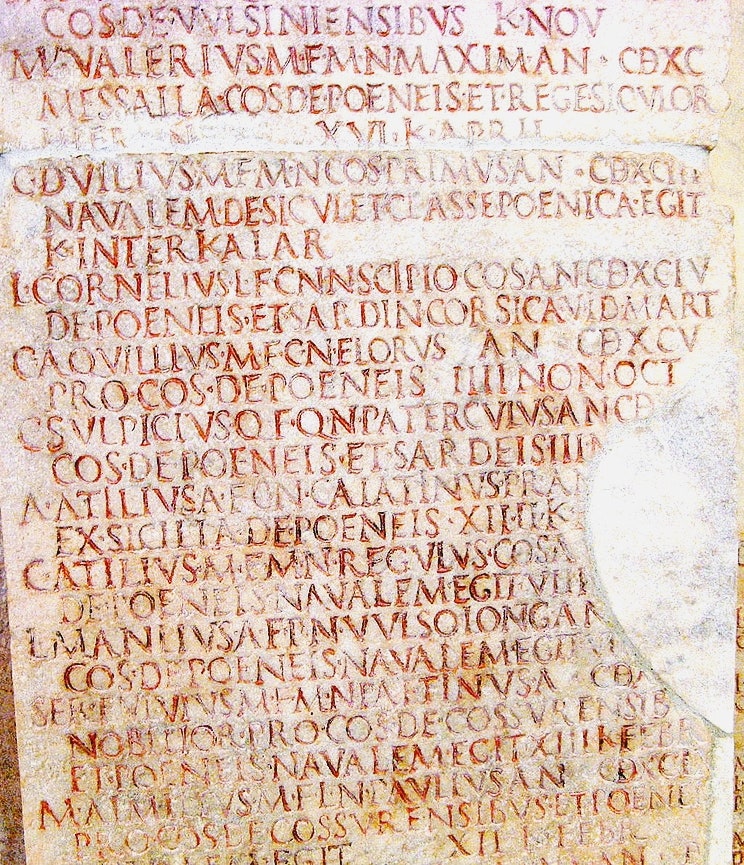 COS·DE·VVLSINIENSIBVS K·NOV
M·VALERIVS·M·F·M·N·MAXIM·AN · CDXC
MESSALLA·COS·DE·POENEIS·ET·REGE·SICVLOR
XVI·K·APRIL
C·DVILIVS·M·F·M·N·COS·PRIMVS·AN · CDXCIII
NAVALEM·DE·SICVL·ET·CLASSE·POENICA·EGIT
K·INTERKALAR
L·CORNELIVS·L·F·CN·N·SCIPIO·COS·AN·CDXCIV
DE·POENEIS·ET·SARDIN·CORSICA·V·ID·MART
C·AQVILLIVS·M·F·C·N·FLORVS AN CDXCV
PRO·COS·DE·POENEIS· IIII·NON·OCT
C·SVLPICIVS·Q·F·Q·N·PATERCVLVS·AN·CD
COS·DE·POENEIS·ET·SARDEIS·III
A·ATILIVS·A·F·C·N·CALATINVS·PR·AN
EX·SICILIA·DE·POENEIS·XIIII·K
C·ATILIVS·M·F·M·N·REGVLVS·COS·A
DE·POENEIS·NAVALEM·EGIT·VIII
L·MANLIVS·A·F·P·N·VVLSO·LONG·AN
COS·DE·POENEIS·NAVALEM·EGIT
SER·FVLVIVS·M·F·M·N·PAETINVS·A CD
NOBILIOR·PRO·COS·DE·COSSVRENSIB
ET·POENEIS·NAVALEM·EGIT·XIII·K·FEBR
M·AIMILIVS·M·F·L·N·PAVLLVS·AN CDXCI
PRO·COS·DE·COSSVRENSIBVS·ET·POENEIS
EGIT XII K·FEBR